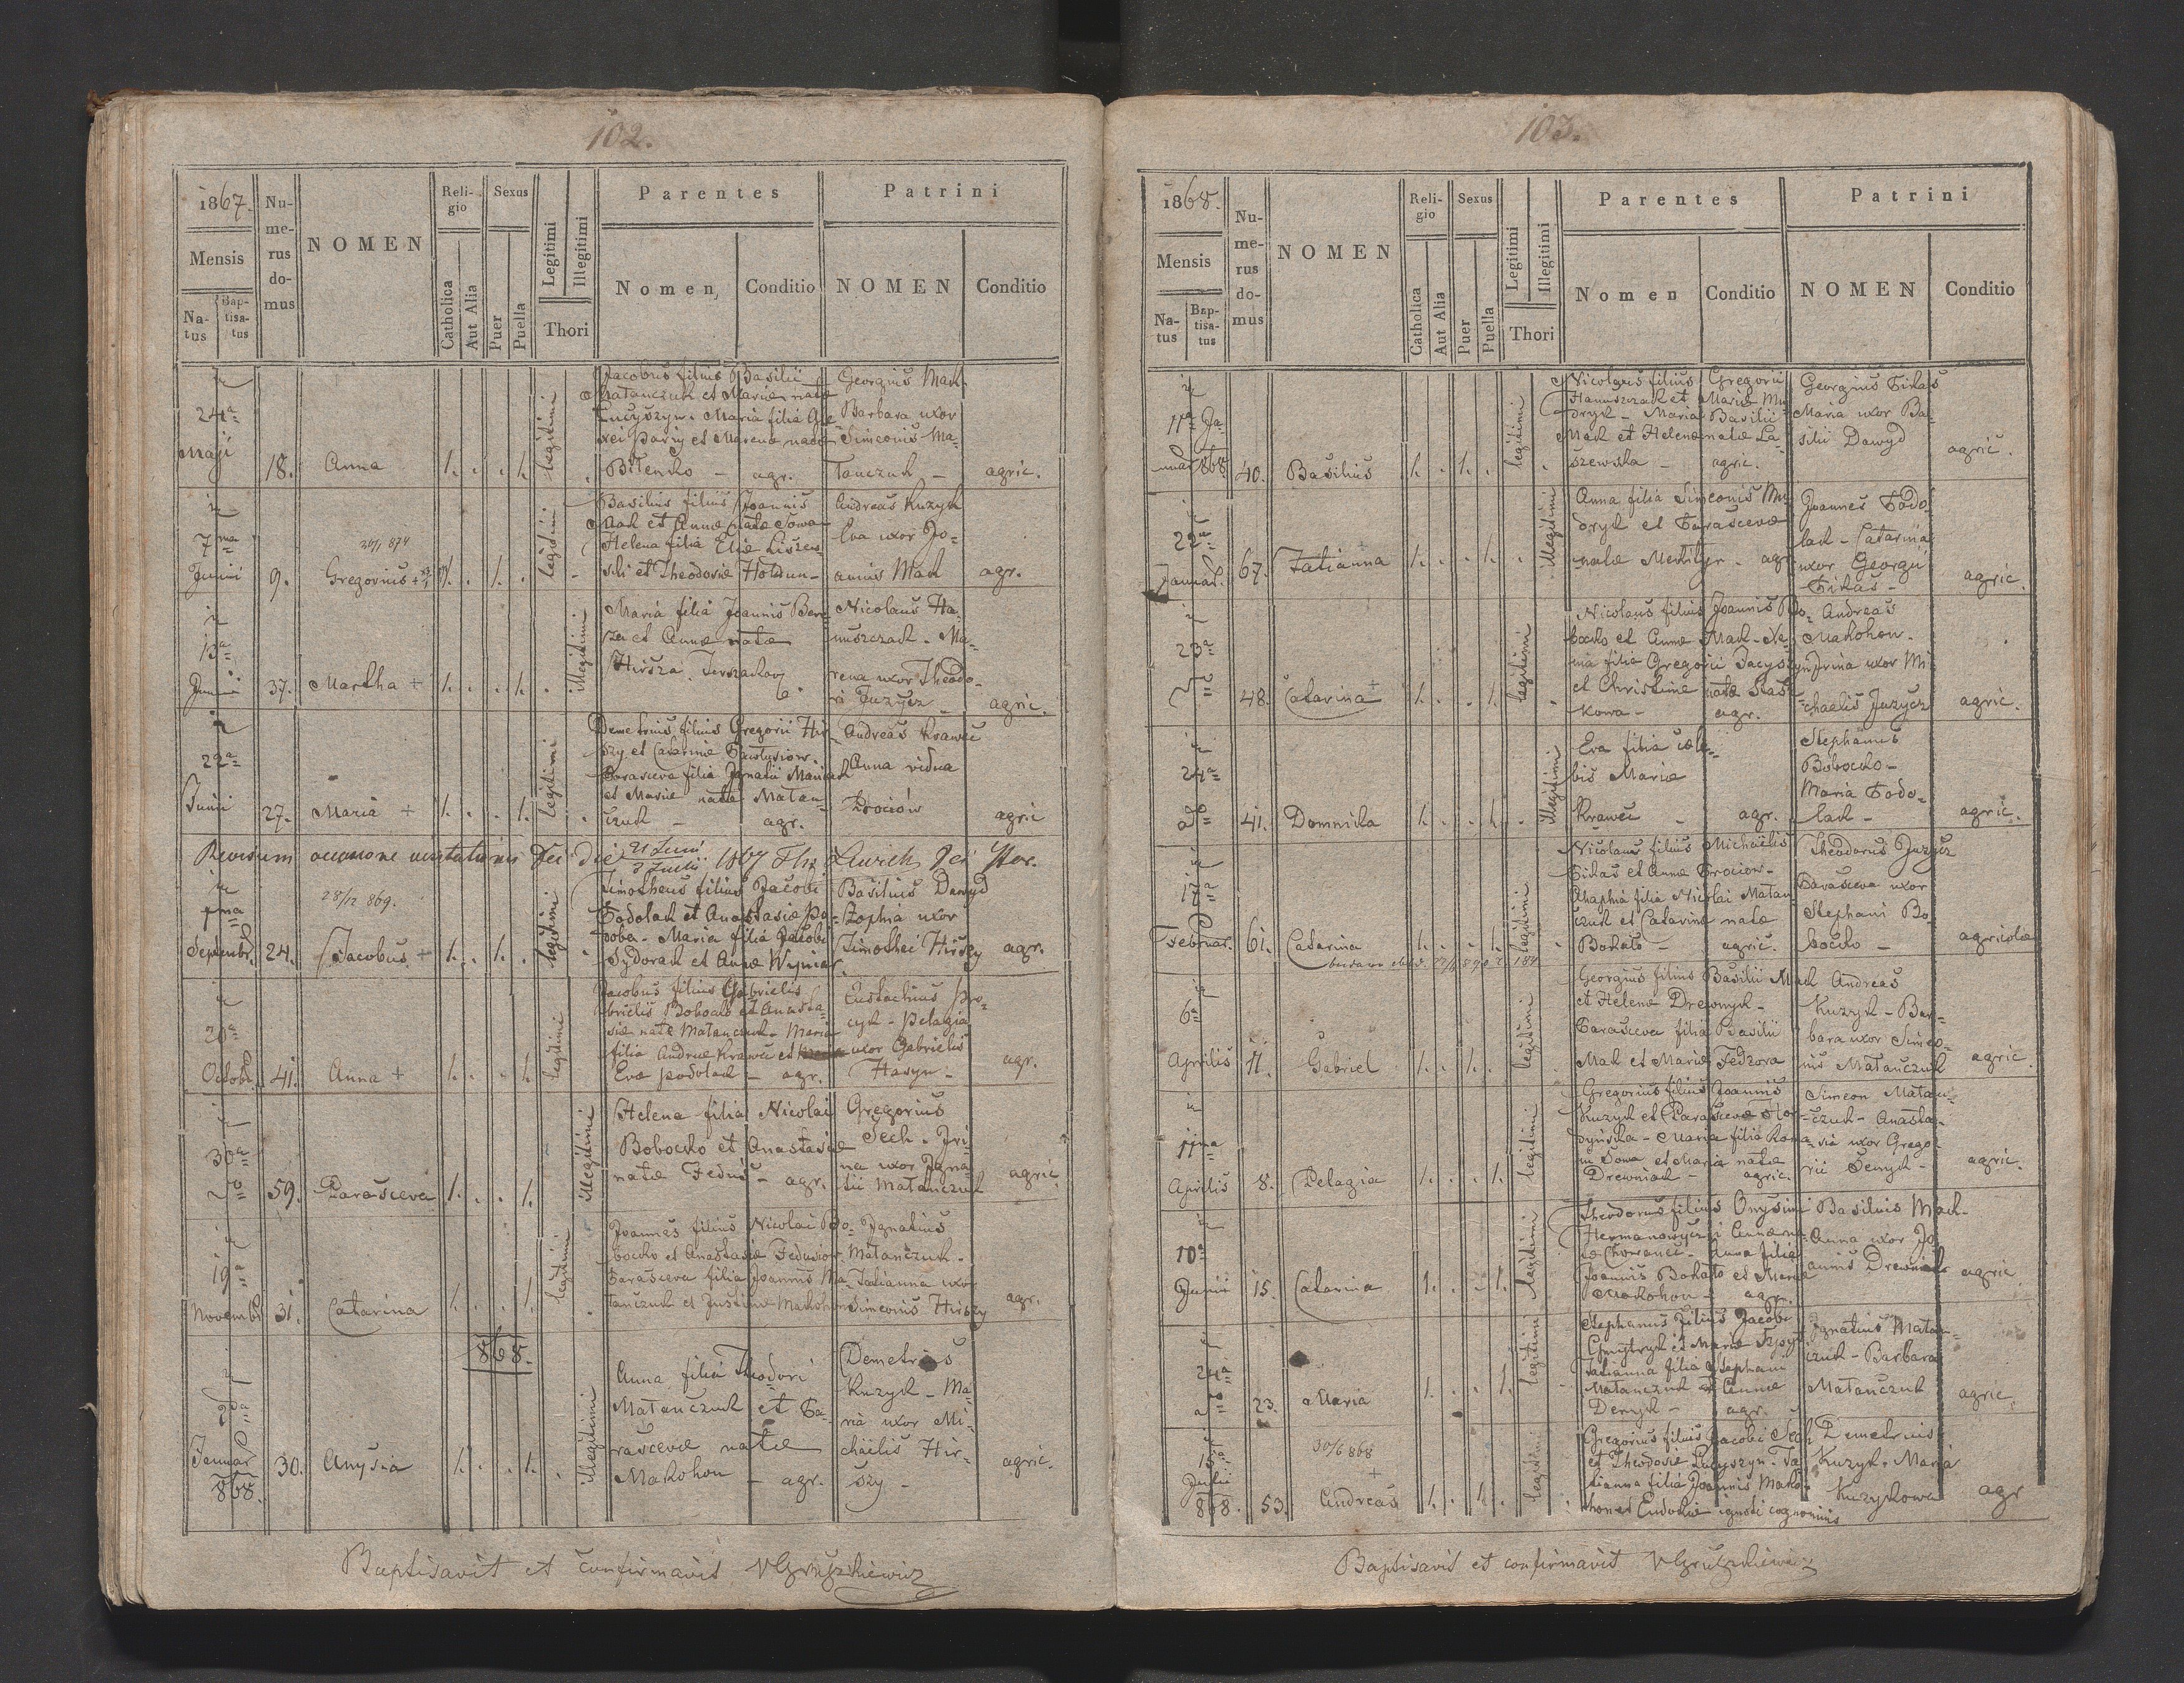 102.
1867.
Mensis
Natus
Baptisatus
Numerus domus
NOMEN
Religio
Catholica
Aut Alia
Sexus
Puer
Puella
Legitimi
Illegitimi
Thori
Parentes
Nomen
Conditio
Patrini
NOMEN
Conditio
24ª
Maji
18.
Anna
1.
1.
legitimi
Jacobus filius Basilii
Matanczuk et Mariæ natæ
Maria filia
Bilenko - agr.
Georgius Mak
Barbara uxor
Simeonis Ma-
tanczuk -
agric.
7ma
Junii
9.
Gregorius +
1.
1.
legitimi
Basilius filius Joannis
Mak et Annæ natæ Sowa
Helena filia Eliæ Liszew
ski et Theodosiæ
Andreas Kuzyk
Eva uxor Jo-
annis Mak
agr.
13ª
Junii
37.
Martha +
1.
1.
Illegitimi
Maria filia Joannis
et Annæ natæ
Hirsza
Nicolaus Ha-
nuszczak. Ma-
rena uxor Theodo-
ri Juzycz
agric.
22ª
Junii
27.
Maria +
1.
1.
legitimi
Demetrius filius Gregorii Hir
szy et Catarinæ
Parasceva filia Ignatii
et Mariæ natæ Matan-
czuk - agr.
Andreas Krawec
Anna vidua
Prociów
agric
Revisum occasione
1867
28/12 869.
1ma
Septembr.
24.
Jacobus +
1.
1.
legitimi
Timotheus filius Jacobi
Podolak et Anastasiæ Po-
Maria filia Jacobi
Sydorak et Annæ
Basilius Dawyd
Zophia uxor
Timothei Hirszy
agr.
20ª
Octobr.
41.
Anna +
1.
1.
legitimi
Jacobus filius Gabrielis
Bobocko et Anasta-
siæ natæ Matanczuk - Maria
filia Andreæ Krawec et
Evæ Podolak - agr.
Eustachius Pro-
cyk - Pelagia
uxor Gabrielis
Hasyn -
agr.
30ª
59.
Parasceva
1.
1.
Illegitimi
Helena filia Nicolai
Bobocko et Anastasiæ
natæ Feduś - agr.
Gregorius
Sech. Iri-
na uxor Igna-
tii Matanczuk
agric
19ª
Novembr
31.
Catarina
1.
1.
legitimi
Joannes filius Nicolai Bo-
bocko et Anastasiæ
Parasceva filia Joannis Ma-
tanczuk et Justinæ Makohon
Ignatius
Matanczuk.
Tatianna uxor
Simeonis Hirszy
agr.
868.
2da
Januar
868.
30.
Anysia
1.
1.
Illegitimi
Anna filia Theodori
Matanczuk et Pa-
rascevæ natæ
Makohon - agr.
Demetrius
Kuzyk - Ma-
ria uxor Mi-
chaelis Hir-
szy -
agric.
Baptisavit et confirmavit VGruszkiewicz
103.
1868.
Mensis
Natus
Baptisatus
Numerus domus
NOMEN
Religio
Catholica
Aut Alia
Sexus
Puer
Puella
Legitimi
Illegitimi
Thori
Parentes
Nomen
Conditio
Patrini
NOMEN
Conditio
11ª Ja-
nuar 868
40.
Basilius
1.
1.
legitimi
Nicolaus filius Gregorii
Hanuszczak et Mariæ Mu
dryk - Maria Basilii
Mak et Helenæ natæ La-
szewska - agric.
Georgius
Maria uxor Ba-
silii Dawyd
agric.
22ª
Januar.
67.
Tatianna
1.
1.
Illegitimi
Anna filia Simeonis Mu
dryk et Parascevæ
natæ - agr
Joannes Podo
lak - Catarina
uxor Georgii
agric
23ª
48.
Catarina
1.
1.
legitimi
Nicolaus filius Joannis Bo-
bocko et Annæ Mak -
filia Gregorii
et Christinæ natæ Stas
kowa - agr.
Andreas
Makohon.
Irina uxor Mi
chaelis Juzycz
agric.
24ª
41.
Domnika
1.
1.
illegitimi
Eva filia cæle-
bis Mariæ
Krawec - agr.
Stephanus
Bobocko -
Maria Podo-
lak -
agric.
17ª
Februar.
61.
Catarina
1.
1.
legitimi
Nicolaus filius Michaelis
et Annæ Prociow -
filia Nicolai Matan-
czuk et Catarinæ natæ
Bokało - agric.
Theodorus Juzycz
Parasceva uxor
Stephani Bo-
bocko -
agricolæ
6ª
Aprilis
11.
Gabriel
1.
1.
legitimi
Georgius filius Basilii Mak
et Helenæ Drewnyk -
Parasceva filia Basilii
Mak et Mariæ Fedzora
Andreas
Kuzyk - Bar-
bara uxor Simeo-
nis Matanczuk
agric
11ma
Aprilis
8.
Pelagia
1.
1.
legitimi
Gregorius filius Joannis
Kuzyk et Parascevæ Hor-
dyńska - Maria filia Roma-
ni Sowa et Mariæ natæ
Drewniak - agric.
Simeon Matan-
czuk - Anasta-
sia uxor Grego-
rii Senyk -
agric.
10ª
Junii
15.
Catarina
1.
1.
legitimi
Theodorus filius Onysimi
Hermanowycz
Anna filia
Joannis Bokało et Mariæ
Makohon - agr.
Basilius Mak -
Anna uxor Jo-
annis Drewniak
agric
24ª
23.
Maria
1.
1.
legitimi
Stephanus filius Jacobi
Dmytryk et Mariæ
Tatianna filia Stephani
Matanczuk et Annæ
Denyk - agr.
Ignatius Matan-
czuk - Barbara
Matanczuk
agric
15ª
Julii
868.
53.
30/6 868
+
Andreas
1.
1.
legitimi
Gregorius filius Jacobi Sech
et Theodosiæ Lucyszyn. Ta-
tianna filia Joannis Mako-
hon et Eudokiæ ignoti cognominis
Demetrius
Kuzyk. Maria
Kuzykowa
agr
Baptisavit et confirmavit VGruszkiewicz